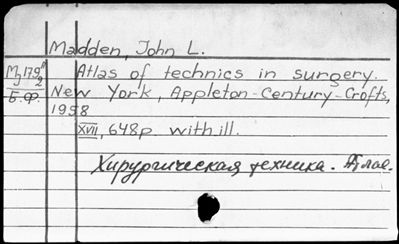 Madden, John L.
Atlas of technics in surgery.
New York, Appleton-Century-Crofts,
1958
XVII, 648p. with ill.
Хирургическая техника.
Б.ф.